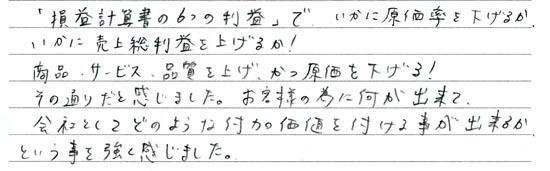 「損益計算書の6つの利益」で、いかに原価率を下げるか、
いかに売上総利益を上げるか!
商品、サービス、品質を上げ、かつ原価を下げる!
その通りだと感じました。お客様の為に何が出来て、
会社としてどのような付加価値を付ける事が出来るか
という事を強く感じました。